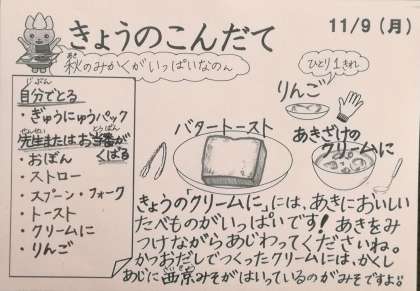 きょうのこんだて
11/9(月)
秋のみかくがいっぱいなのん
自分でとる
・ぎゅうにゅうパック
先生またはお当番が
くばる
・おぼん
・ストロー
・スプーン・フォーク
・トースト
・クリームに
・りんご
ひとり1きれ
りんご
バタートースト
あきざけの
クリームに
きょうの「クリームに」には、あきにおいしい
たべものがいっぱいです!あきをみ
つけながらあじわってくださいね。
かつおだしでつくったクリームには、かくし
あじに西京みそがはいっているのがみそですよ!!